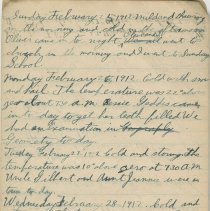 Sunday February 25, 1912. Mildred
in the morning and
came in to night went to
church in the morning and I went to Sunday
School.
Monday February 26, 1912. Cold with snow
and hail. The temperature was 22° above
zero about 7:30 a.m. Jessie Geddes came
in to day to get her teeth filled. We
had an examination in
Geometry to day.
Tuesday February 27, 1912. Cold and stormy. The
temperature was 10° above zero at 7:30 A.M.
Uncle Gilbert and Aunt Jennie were in
town to day.
Wednesday February 28, 1912. Cold and